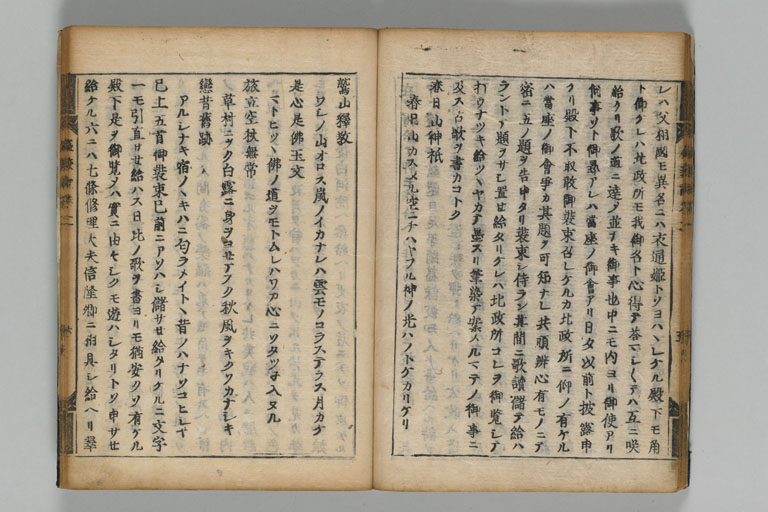 レハ父相國モ異名ニハ衣通姫トソヨハヽレケル殿下モ角
ト御クレハ北政所モ我御名ト心得テ答マシ〳〵テハ互ニ咲
給ケリ歌ノ道ニ達ノ並ナキ御事也中ニモ内ヨリ御使アリ
何事ソト御尋アレハ當座ノ御會アリ日タ以前ト披露申
ケリ殿下不取敢御装束召レケルカ北政所ニ仰ノ有ケル
ハ當座ノ御會爭カ其題ヲ可知ナレ共頓辨心有モノニテ
密ニ五ノ題ヲ告申タリ装束シ侍ラン其間ニ歌讀儲テ給ハ
ラントテ題ヲサシ置セ給タリケレハ北政所コレヲ御覧シテ
打ウナツキ給ツヽヤカテ墨スリ筆染テ案スルマテノ御事ニ
及ス古歌ヲ書カコトク
春日山神祇
春日山カスメル空ニチハヤフル神ノ光ハノトケカリケリ
鷲山釋教
ワシノ山オロス嵐ノイカナレハ雲モノコラステラス月カケ
是心是佛玉文
マトヒツヽ佛ノ道ヲモトムレハワカ心ニソタツネ入ヌル
旅立空杖無常
草村ニヲク白露ニ身ヲヨセテフク秋風ヲキクソカナシキ
戀昔舊跡
アルシナキ宿ノノキハニ匂フメイトヽ昔ノハナソコヒシキ
已上五首御装束已前ニアソハシ儲サセ給タリケルニ文字
一モ引直サセ給ハス日比ノ歌ヲ書ヨリモ猶安クソ有ケル
殿下是ヲ御覧ノハ實ニ由ヽシクモ遊ハシタリトソ申サセ
給ケル六ニハ七條修理大夫信隆卿ニ相具シ給ヘリ翠